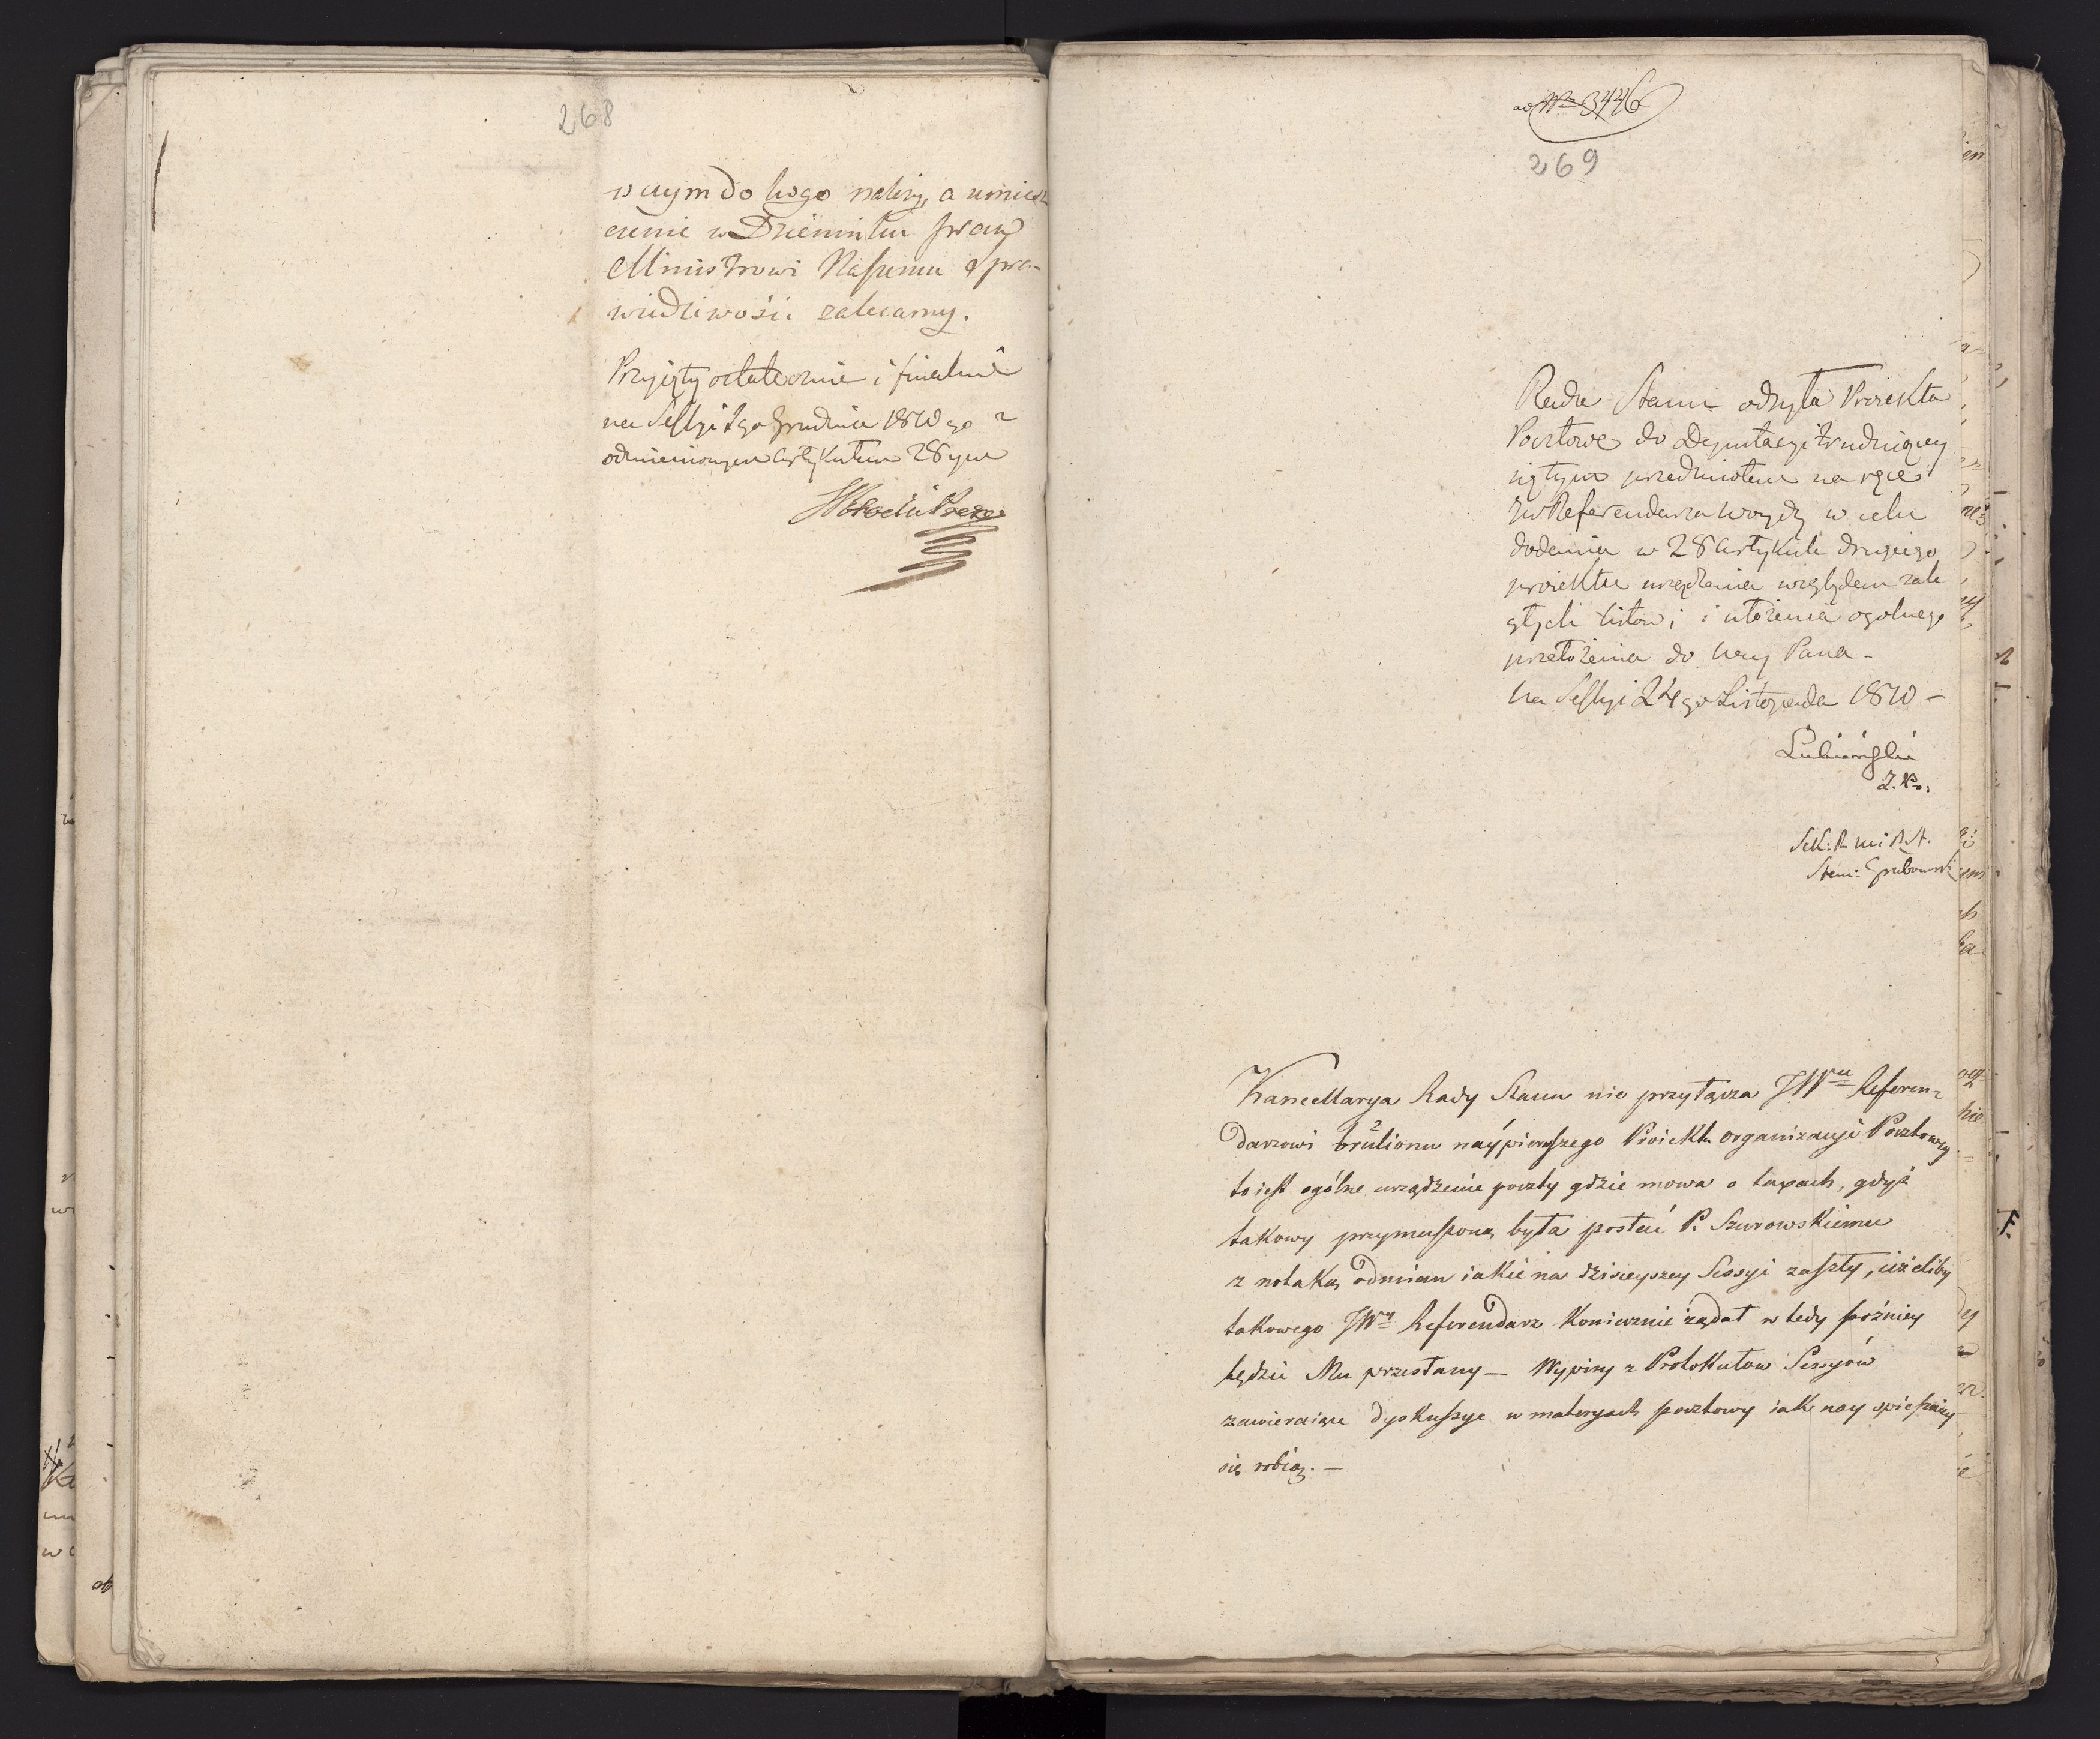 268
w czym do kogo należy, a umiesz
czenie w Dzienniku praw
Ministrowi Naszemu Spra-
wiedliwości zalecamy.
Przyięty ostatecznie i finalnie
na Sessyi 1go Grudnia 1810 go z
odmienionym Artykułem 28ym
ad Nro 3446
269
Rada Stanu odsyła Proiekta
Pocztowe do Deputacyi trudniącey
się tym przedmiotem na ręce
JW Referendarza Woydy w celu
dodania w 28 Artykule drugiego
proiektu urządzenia względem zale
głych listów; i ułożenia ogolnego
przełożenia do Nay Pana -
Na Sessyi 24go Listopada 1810 -
Łubieński
Z. P.
Sek: R. Mi i R. St.
Stan: Grabowski
Kancellarya Rady Stanu nie przyłącza JWu Referen-
darzowi brulionu naypierwszego Proiektu organizacyi Pocztowey
to iest ogólne urządzenie poczty gdzie mowa o taxach, gdyż
takowy przymuszoną była posłać P. Szurowskiemu
z notaką odmian iakie na dzisieyszey Sessyi zaszły, ieżeliby
takowego JWy Referendarz koniecznie żądał w tedy poźniey
będzie Mu przesłany — Wypisy z Protokułow Sessyów
zawieraiące dyskussye w materyach pocztowy iak nay spieszniey
się robią. —